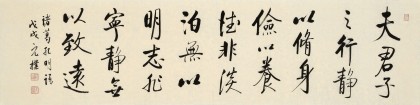 夫君子
之行靜
以脩身
儉以養
德非淡
泊無以
明志非
寧靜無
以致遠
諸葛孔明語
戊戌元樸